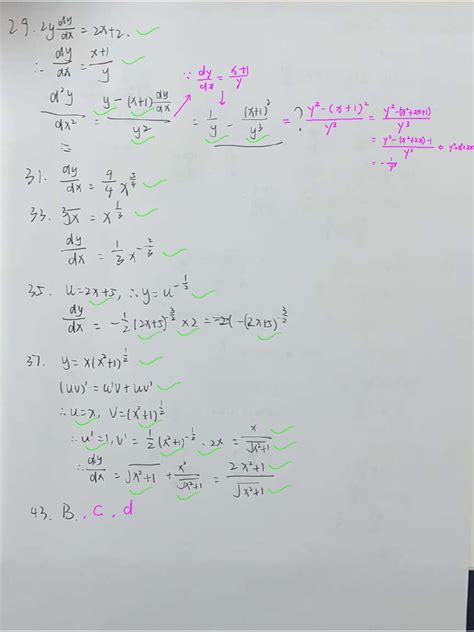 29. 2y dy/dx = 2x+2.
∴ dy/dx = x+1/y
∵ dy/dx = x+1/y
d²y/dx² = y-(x+1)dy/dx / y² = 1/y - (x+1)²/y³ = ? y²-(x+1)²/y³ = y²-(x²+2x+1)/y³
= y²-(x²+2x)-1/y³
= -1/y³
31. dy/dx = 9/4 x^5/4
33. ³√x = x^1/3
dy/dx = 1/3 x^-2/3
35. u=2x+5, ∴ y=u^-1/2
dy/dx = -1/2 (2x+5)^-3/2 ×2 = -(2x+5)^-3/2
37. y=x(x²+1)^1/2
(uv)' = u'v + uv'
∴ u=x, v=(x²+1)^1/2
∴ u'=1, v'= 1/2 (x²+1)^-1/2 · 2x = x/√x²+1
∴ dy/dx = √x²+1 + x²/√x²+1 = 2x²+1/√x²+1
43. B. c, d